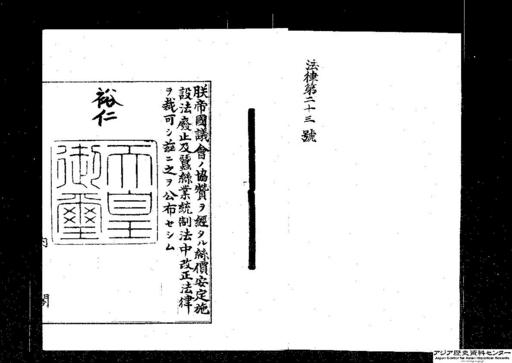 法律第二十三號
朕帝國議會ノ協贊ヲ經タル絲價安定施
設法廢止及蠶絲業統制法中改正法律
ヲ裁可シ茲ニ之ヲ公布セシム
裕仁
天皇
御璽
内閣
アジア歴史資料センター
Japan Center for Asian Historical Records